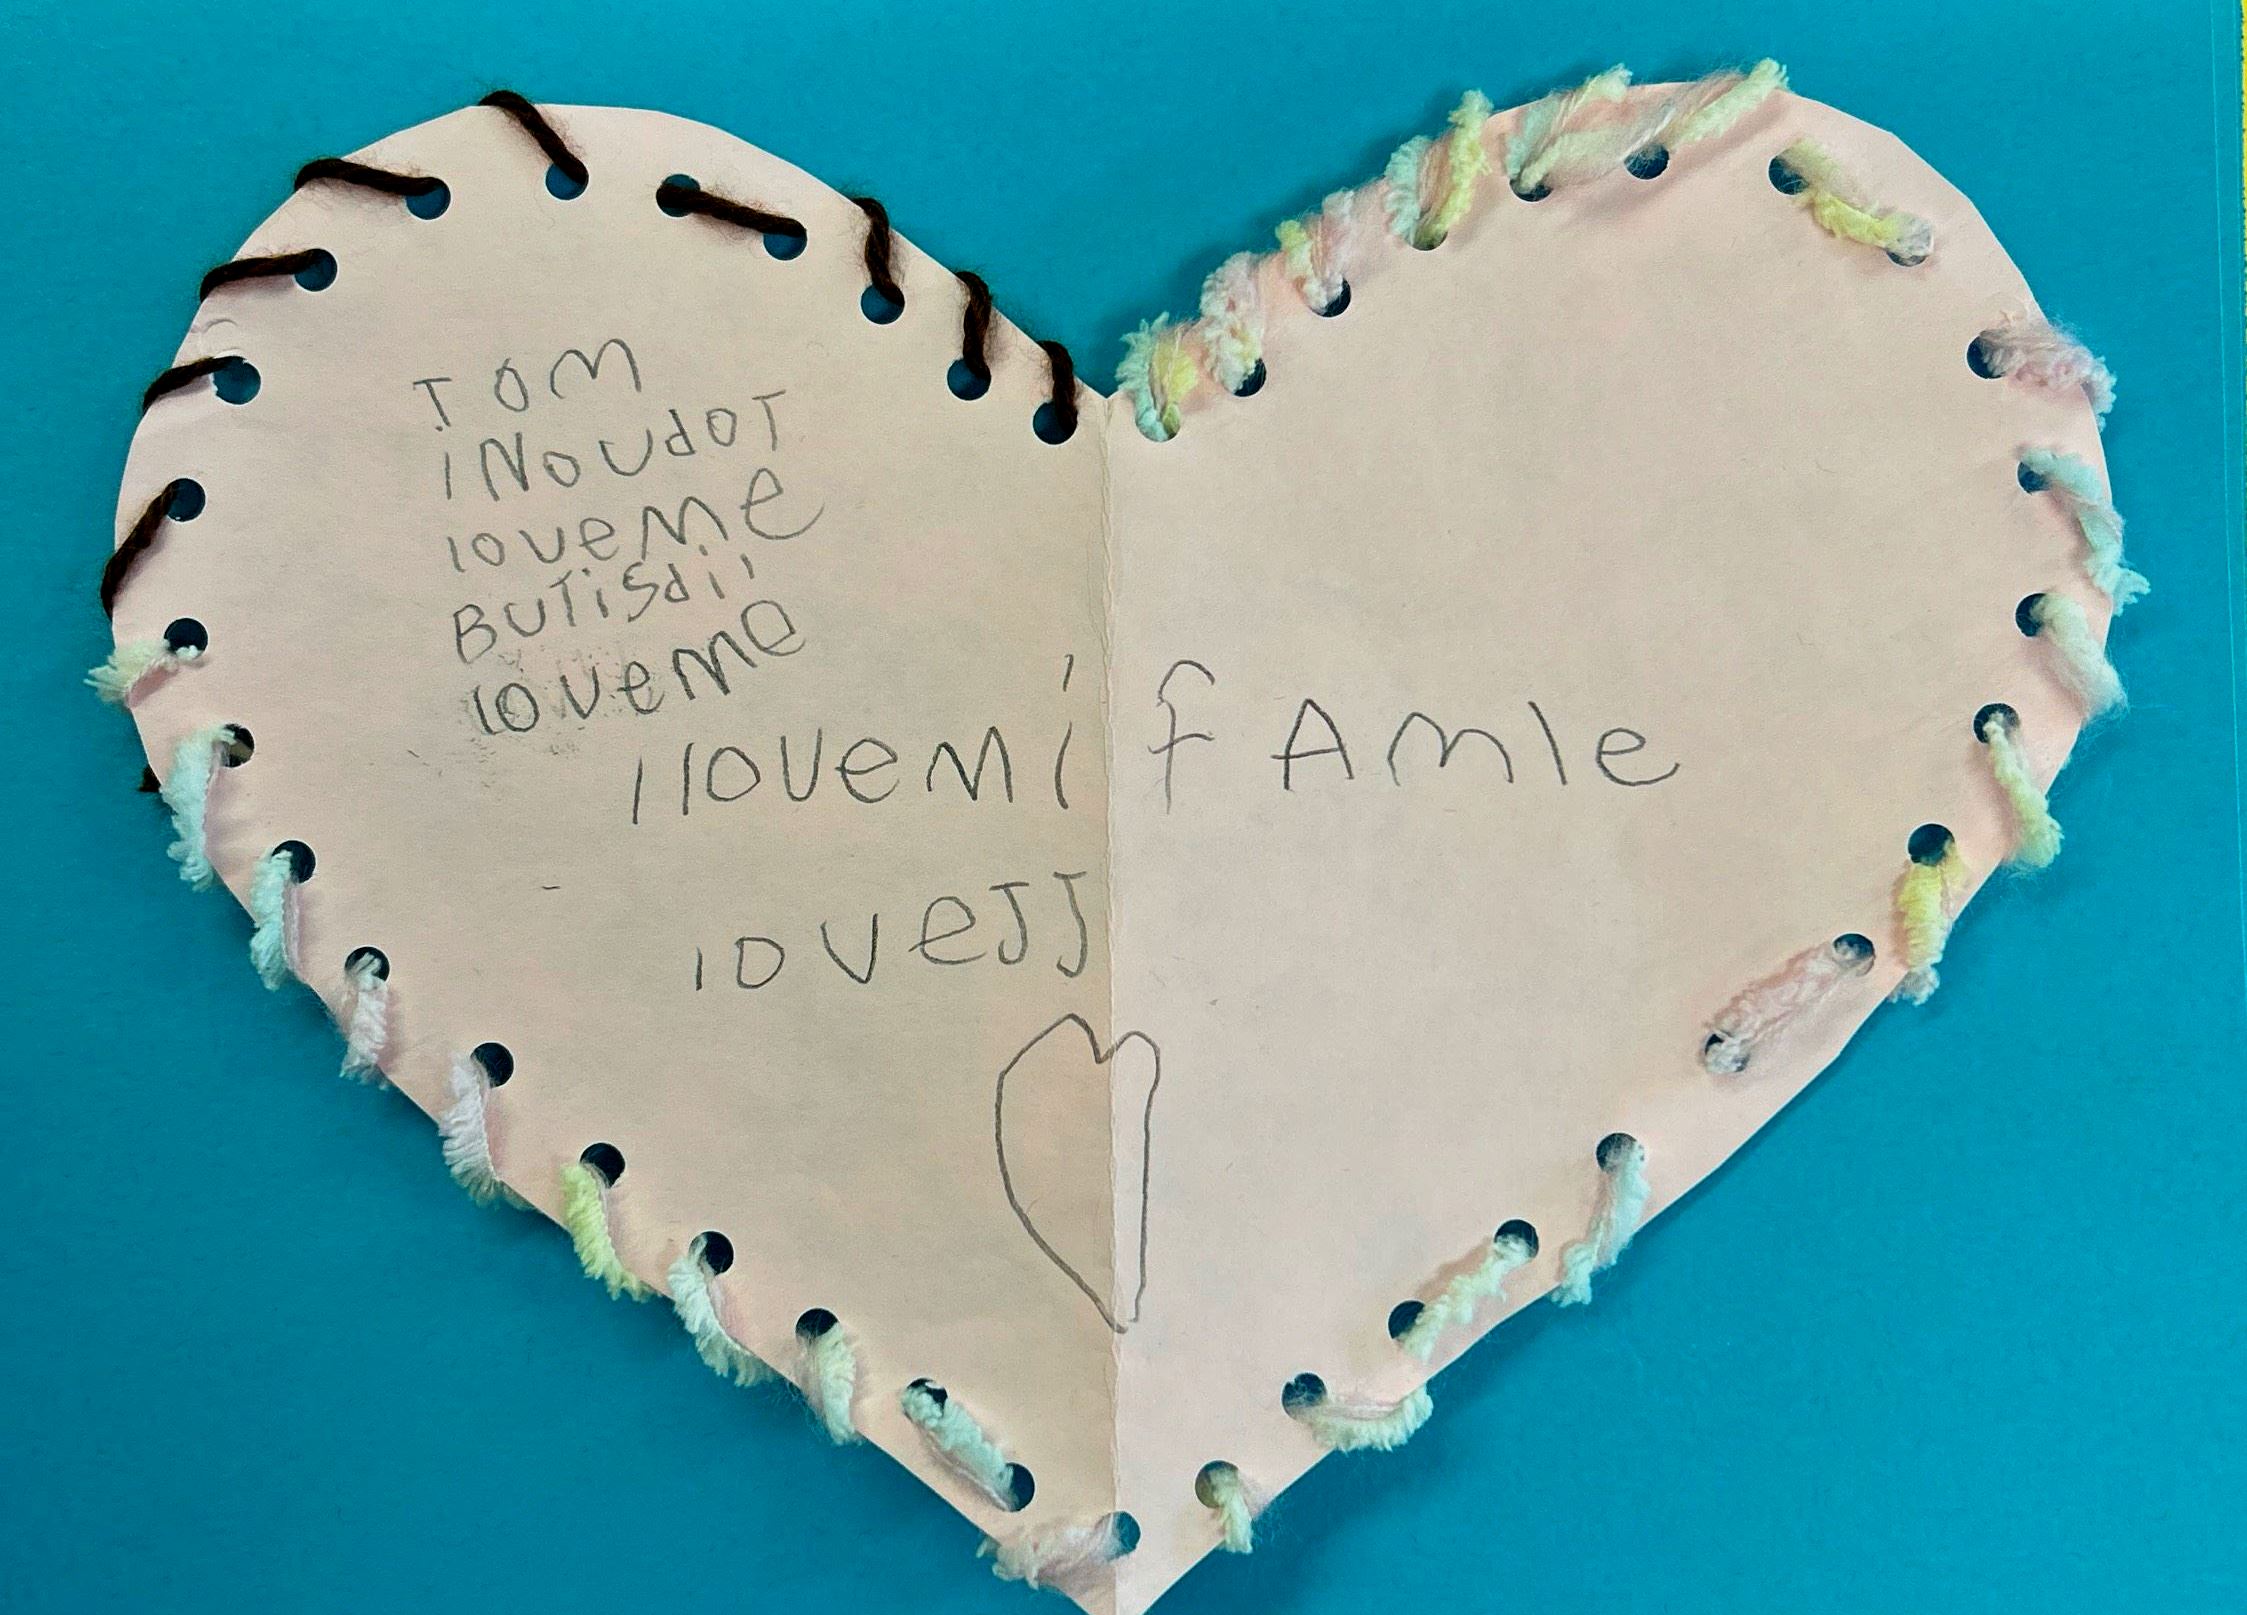 TOM
iNoudoT
loveme
BuTisdil
loveme
ilovemi fAmle
loveJJ